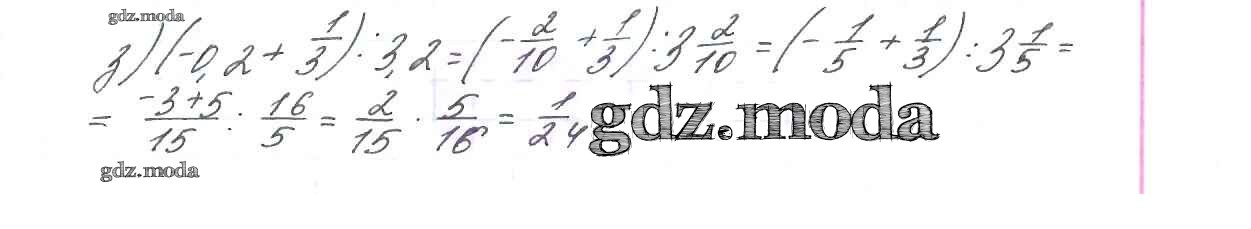 gdz.moda
з) (-0,2 + 1/3) : 3,2 = (-2/10 + 1/3) : 3 2/10 = (-1/5 + 1/3) : 3 1/5 =
= -3+5/15 : 16/5 = 2/15 · 5/16 = 1/24
gdz.moda
gdz.moda